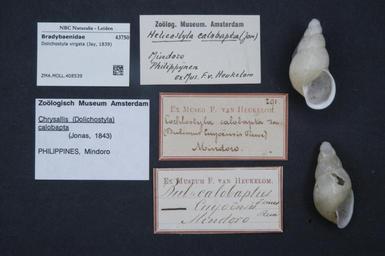 NBC Naturalis - Leiden
Bradybaenidae 43750
Dolichostyla virgata (Jay, 1839)
ZMA.MOLL.408539
Zoölogisch Museum Amsterdam
Chrysallis (Dolichostyla)
calobapta
(Jonas, 1843)
PHILIPPINES, Mindoro
Zoölog. Museum. Amsterdam
Helicostyla calobapta (Jon)
Mindoro
Philippijnen
ex Mus. F. v. Heukelom
201.
Ex Museo F. van Heukelom.
Cochlostyla calobapta Jon.
(Bulimus Cuyoensis
Mindoro.
Ex Museum F. van Heukelom.
Bul. calobaptus
Jonas
Cuyoensis
Mindoro